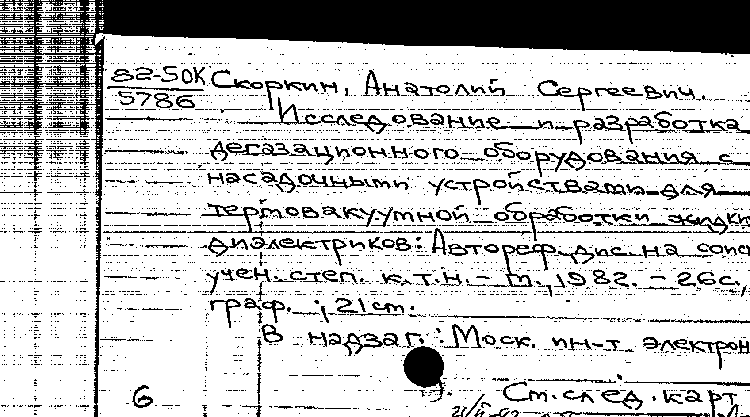 82-50К Скоркин, Анатолий Сергеевич.
5786
Исследование и разработка
дегазационного оборудования с
насадочными устройствами для
термовакуумной обработки жидки
диэлектриков: Автореф. дис. на соис
учен. степ. к.т.н. - М., 1982. - 26с.,
граф. ; 21 cm.
В надзаг.: Моск. ин-т электрон
6 См. след. карт